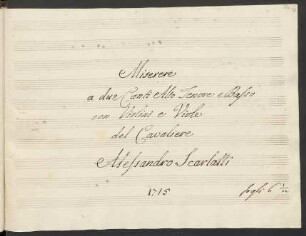 Miserere
a due Canti Alto Tenore e Basso
con Violini e Viole
del Cavaliere
Alessandro Scarlatti
1715
fogli 6